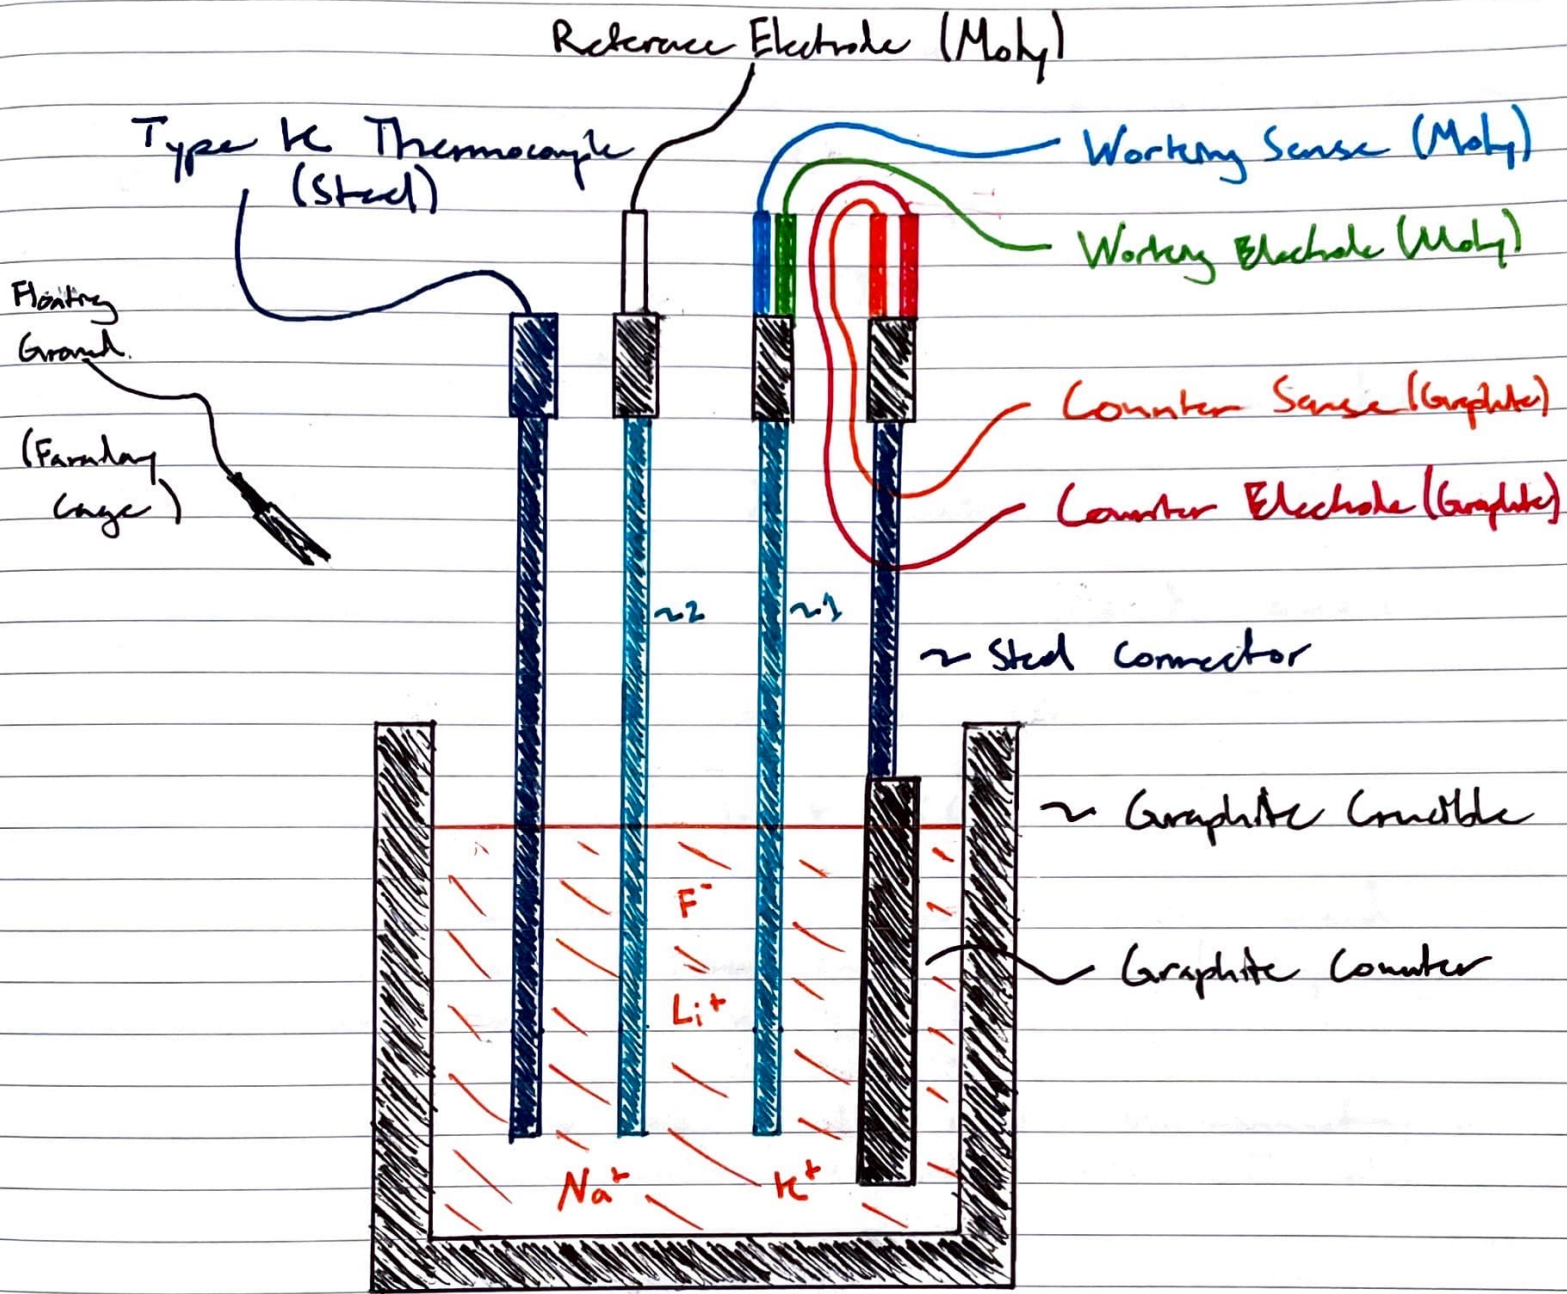 Reference Electrode (Moly)
Type K Thermocouple
(Steel)
Working Sense (Moly)
Working Electrode (Moly)
Floating
Ground.
(Faraday
Cage)
Counter Sense (Graphite)
Counter Electrode (Graphite)
~2
~1
~ Steel Connector
~ Graphite Crucible
F⁻
Graphite Counter
Li⁺
Na⁺
K⁺